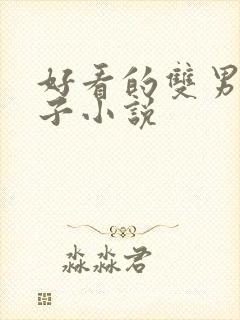 好看的雙男
子小説
淼淼君